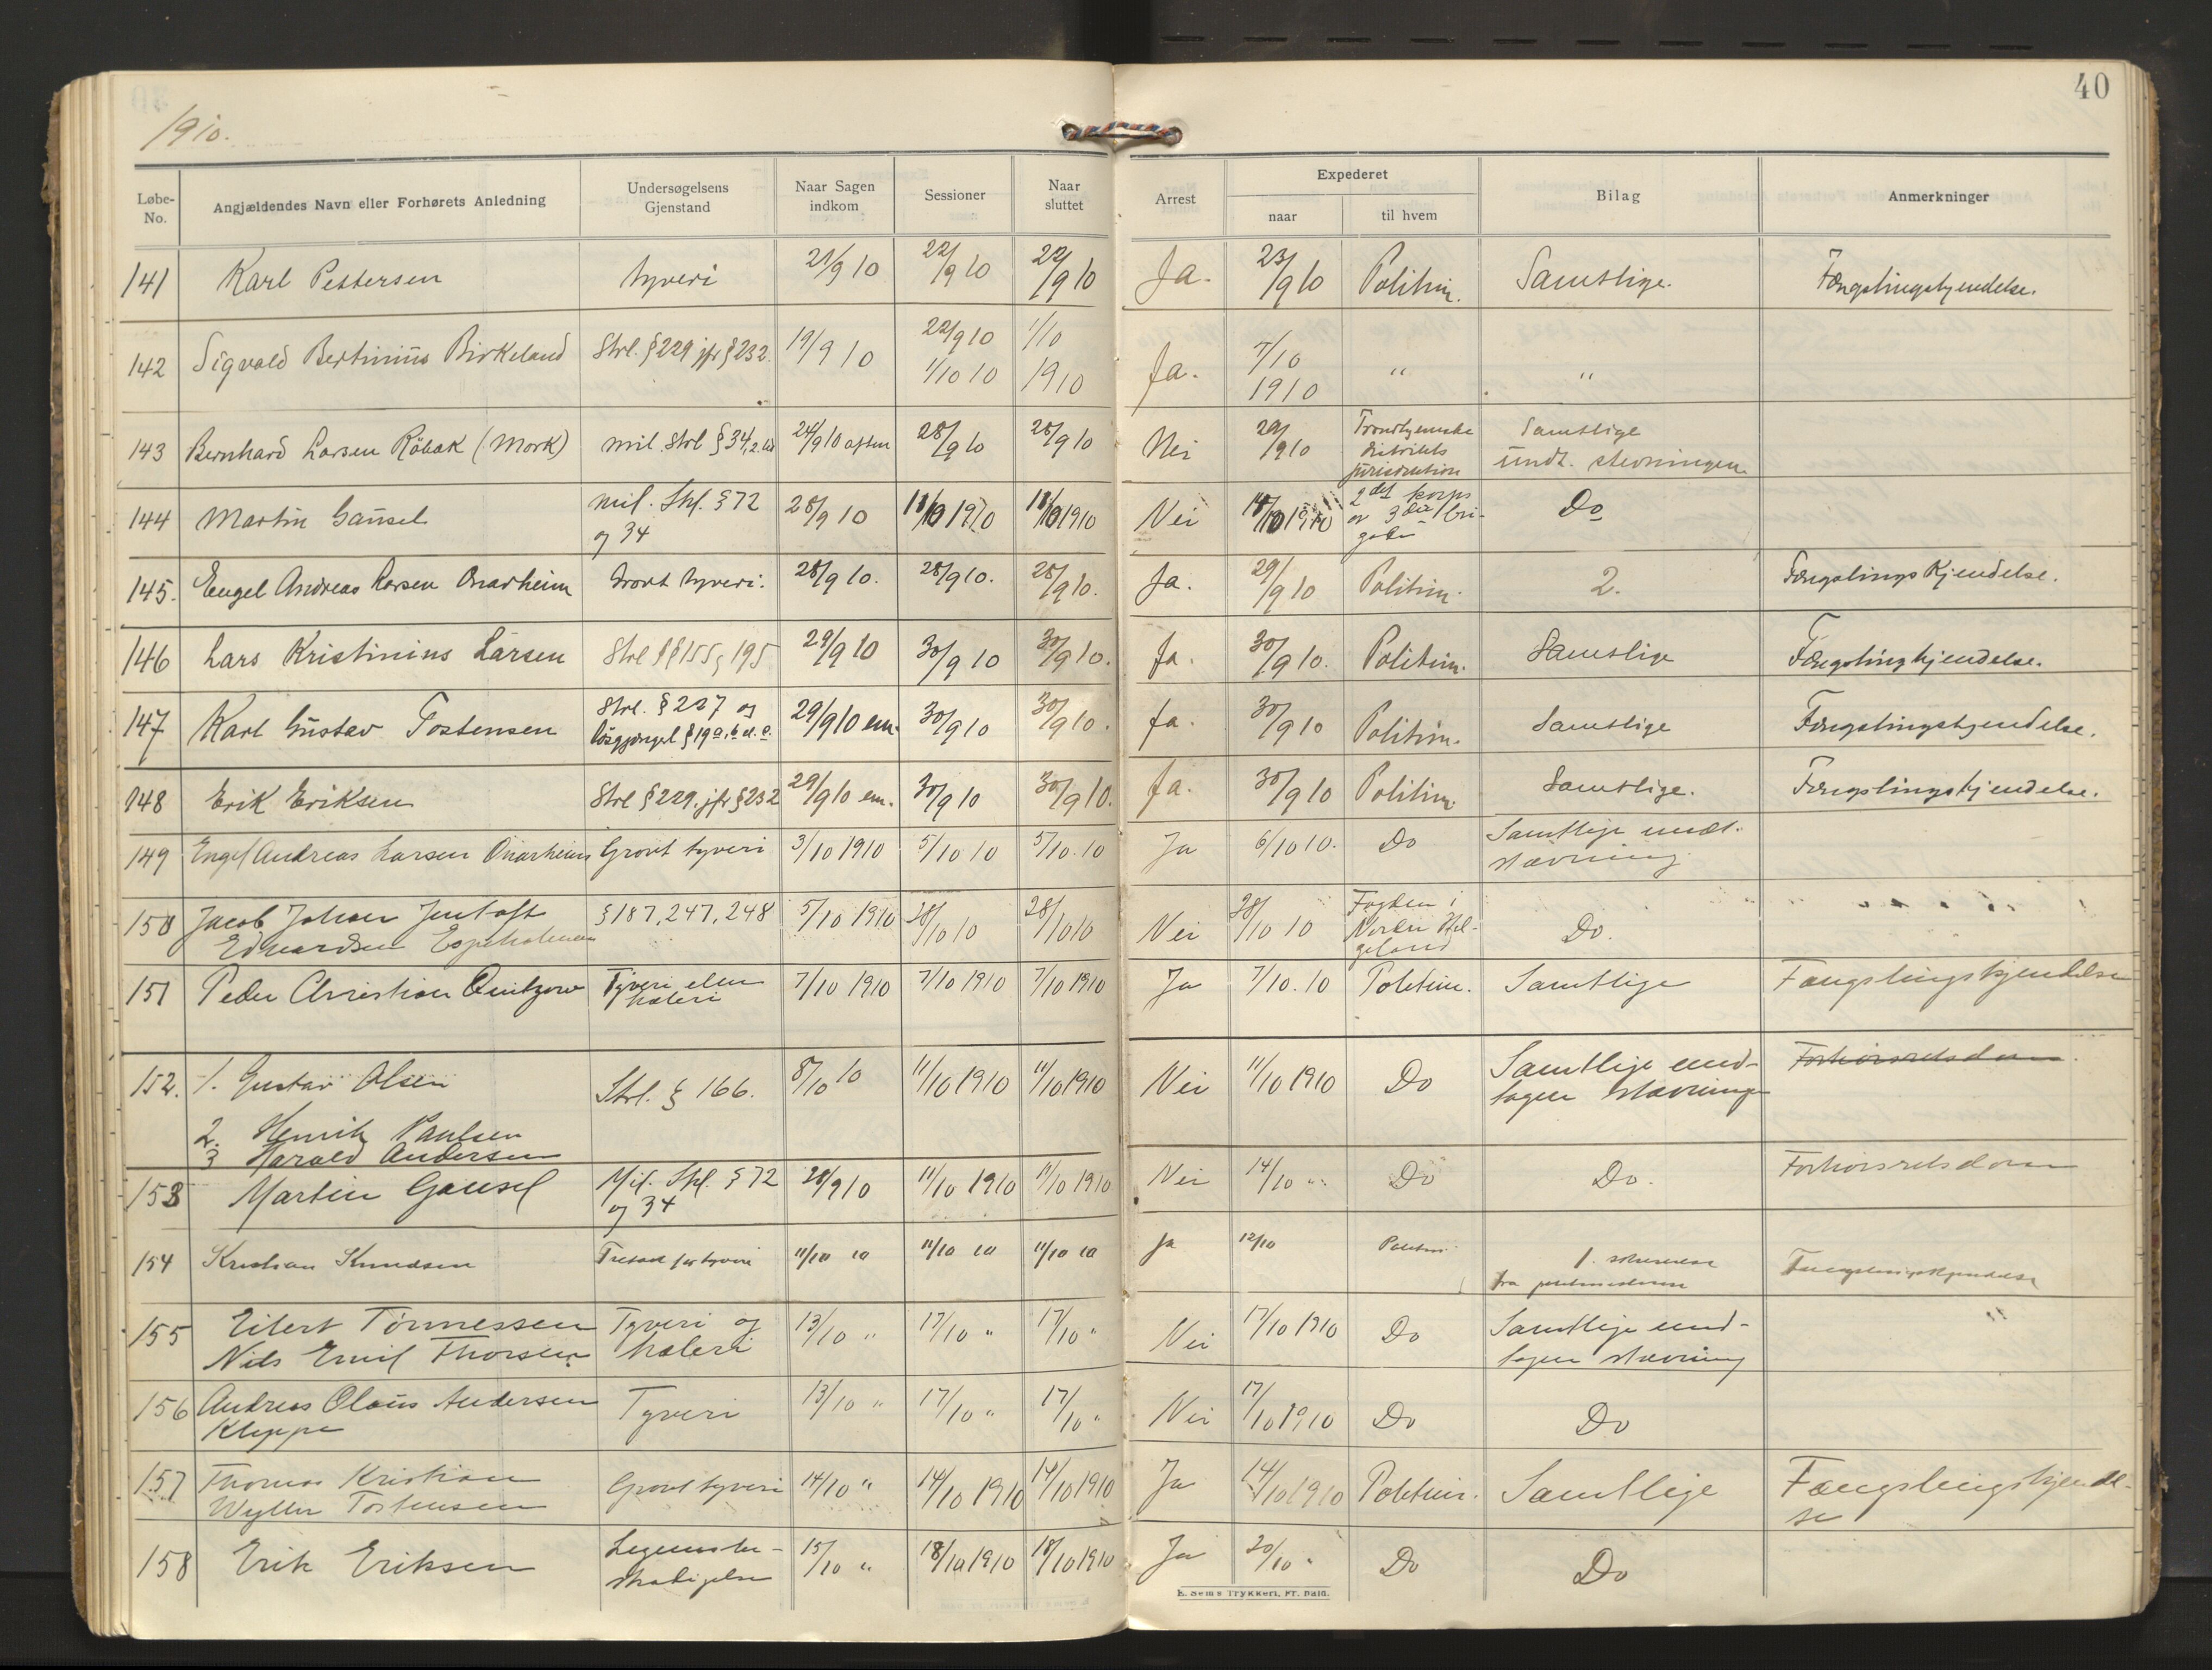 40
1910.
Løbe-No. Angjældendes Navn eller Forhørets Anledning Undersøgelsens Gjenstand Naar Sagen indkom Sessioner Naar sluttet Arrest Expederet naar til hvem Bilag Anmerkninger
141 Karl Pettersen tyveri 21/9 10 22/9 10 22/9 10 Ja. 23/9 10 Politim. Samtlige. Fængslingskjendelse.
142 Sigvald Bertinius Birkeland Strl. § 229 jfr § 232. 19/9 10 22/9 10 1/10
1/10 10 1910 Ja. 7/10 1910 " "
143 Bernhard Larsen Råbak (Mork) mil. Strl § 34, 2. 24/9 10 aften 28/9 10 28/9 10 Nei 29/9 10 Trondhjemske distrikts jurisdiction Samtlige
undt. stevningen
144 Martin Gausel mil. Stfl. § 72
og 34 28/9 10 11/10 1910 11/10 1910 Nei 2det korps
av 3die bri-
gade Do
145. Engel Andreas Larsen Onarheim Grovt tyveri. 28/9 10. 28/9 10. 28/9 10. Ja. 29/9 10 Politim. 2. FængslingsKjendelse.
146 Lars Kristinius Larsen Strl §§ 155, 195 29/9 10 30/9 10 30/9 10. Ja. 30/9 10. Politim. Samtlige Fængslingkjendelse.
147 Karl Gustav Tostensen Strl. § 227 og
løsgjængl. § 19 29/9 10 em. 30/9 10 30/9 10. Ja. 30/9 10 Politim. Samtlige Fængslingskjendelse.
148 Erik Eriksen Strl § 229, jfr § 232 29/9 10 em. 30/9 10 30/9 10. Ja. 30/9 10 Politim. Samtlige. Fængslingskjendelse.
149 Engel Andreas Larsen Onarheim Grovt tyveri 3/10 1910 5/10 10 5/10. 10 Ja 6/10 10. Do Samtlige undt.
stævning
150 Jacob Johan
Edvardsen § 187, 247, 248 5/10 1910 28/10 10 28/10 10 Nei 28/10 10 Fogden i
Nordre Hel-
geland Do.
151 Peder Christian Quitzow Tyveri eller
hæleri 7/10 1910 7/10 1910 7/10 1910 Ja 7/10. 10 Politim. Samtlige Fængslingskjendelse
152. 1. Gustav Olsen Strl. § 166. 8/10 10 11/10 1910 11/10 1910 Nei 11/10 1910 Do Samtlige und-
tagen stævninge Forhørsretsdom.
2. Henrik Paulsen
3 Harald Andersen
153 Martin Gausel Mil. Stfl. § 72
og 34 28/9 10 11/10 1910 11/10 1910 Nei 14/10 " Do Do. Forhørsretsdom
154 Kristian Knudsen for tyveri 11/10 10 11/10 10 11/10 10 Ja 12/10 Politim. 1.
fra Fængslingskjendelse
155 Eilert Tønnessen
Nils Emil Thorsen. Tyveri og
hæleri 13/10 " 17/10 " 17/10 " Nei 17/10 1910 Do Samtlige und-
tagen stævning
156 Andreas Olaus Andersen
Kleppe Tyveri 13/10 " 17/10 " 17/10 " Nei 17/10 1910 Do Do
157 Thomas Kristian
Wyller Torstensen Grovt tyveri 14/10 " 14/10 1910 14/10 1910 Ja 14/10 1910 Politim. Samtlige Fængslingskjendel-
se
158 Erik Eriksen Legemsbe-
skadigelse 15/10 " 18/10 1910 18/10 1910 Ja 20/10 " Do Do
E. Sems Trykkeri, Fr.hald.